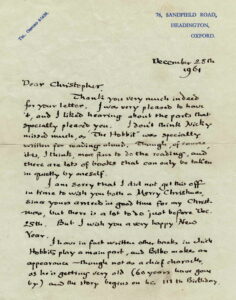 TEL. OXFORD 61639.
76, SANDFIELD ROAD,
HEADINGTON,
OXFORD.
December 28th
1961
Dear Christopher,
Thank you very much indeed
for your letter. I was very pleased to have
it, and I liked hearing about the parts that
specially pleased you. I don't think Nicky
missed much, as 'The Hobbit' was specially
written for reading aloud. Though, of course
it is, I think, more fun to do the reading, and
there are lots of books that can only be taken
in quietly by oneself.
I am sorry that I did not get this off
in time to wish you both a Merry Christmas,
since yours arrived in good time for my Christ-
mas, but there is a lot to do just before Dec.
25th. But I wish you a very happy New
Year.
I have in fact written other books in which
Hobbits play a main part, and Bilbo makes an
appearance – though not as a chief character,
as he is getting very old (60 years have gone
by) and the story begins on his 111th Birthday.